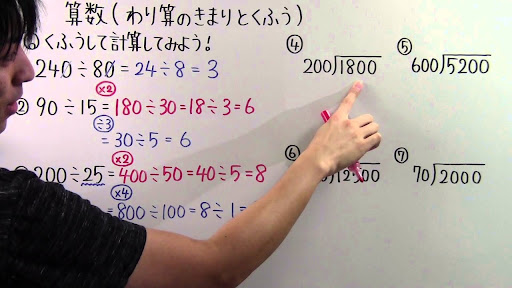 算数(わり算のきまりとくふう)
くふうして計算してみよう!
240÷80=24÷8=3
×2
② 90÷15=180÷30=18÷3=6
÷3
=30÷5=6
×2
200÷25=400÷50=40÷5=8
×4
=800÷100=8÷1=
④
200)1800
⑤
600)5200
⑥
⑦
70)2000